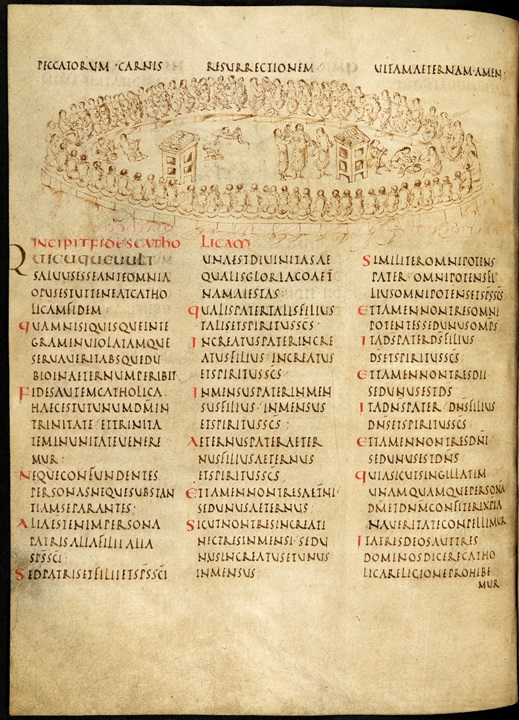 PECCATORUM · CARNIS RESURRECTIONEM UITAMAETERNAM · AMEN
INCIPITFIDESCATHO LICAM
QUICUNQUEUULT
SALUUSESSEANTEOMNIA
OPUSESTUTTENEATCATHO
LICAMFIDEM ·
QUAMNISIQUISQUEINTE
GRAMINUIOLATAMQUE
SERUAUERITABSQUEDU
BIOINAETERNUMPERIBIT
FIDESAUTEMCATHOLICA
HAECESTUTUNUMDMIN
TRINITATE ETTRINITA
TEMINUNITATEUENERE
MUR ·
NEQUECONFUNDENTES
PERSONASNEQUESUBSTAN
TIAMSEPARANTES ·
ALIAESTENIMPERSONA
PATRISALIAFILII ALIA
SPSSCI ·
SEDPATRISETFILIIETSPSSCI
UNAESTDIUINITASAE
QUALISGLORIACOAET
NAMAIESTAS ·
QUALISPATERTALISFILIUS
TALISETSPIRITUSSCS ·
INCREATUSPATERINCRE
ATUSFILIUS INCREATUS
ETSPIRITUSSCS ·
INMENSUSPATERINMEN
SUSFILIUS INMENSUS
ETSPIRITUSSCS ·
AETERNUSPATERAETER
NUSFILIUSAETERNUS
ETSPIRITUSSCS ·
ETTAMENNONTRESAETNI
SEDUNUSAETERNUS ·
SICUTNONTRESINCREATI
NECTRESINMENSI · SEDU
NUSINCREATUSETUNUS
INMENSUS
SIMILITEROMNIPOTENS
PATER · OMNIPOTENSFI
LIUSOMNIPOTENSETSPSSCS
ETTAMENNONTRESOMNI
POTENTESSEDUNUSOMPS
ITADSPATERDSFILIUS
DSETSPIRITUSSCS ·
ETTAMENNONTRESDII
SEDUNUSESTDS
ITADNSPATER DNSFILIUS
DNSETSPIRITUSSCS ·
ETTAMENNONTRESDNI
SEDUNUSESTDNS ·
QUIASICUTSINGILLATIM
UNAMQUAMQUEPERSONA
DMETDNMCONFITERIXPIA
NAUERITATECONPELLIMUR
ITATRESDEOSAUTTRES
DOMINOSDICERECATHO
LICARELIGIONEPROHIBE
MUR